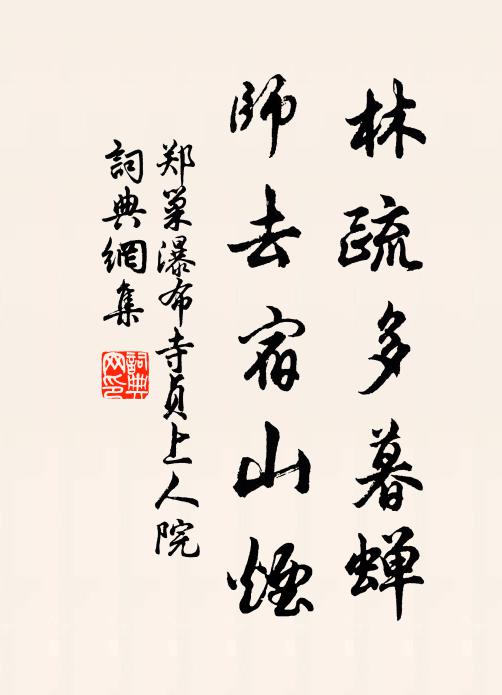 林疏多暮蝉
師去宿山煙
郑巢瀑布寺貞上人院
詞典網集
詞典网印